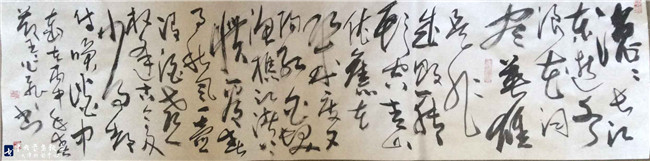 滚滚长江
东逝水
浪花淘
尽英雄
是非
成败转
头空青山
依旧在
几度夕
阳红白发
渔樵江渚上
惯看秋月春
风一壶
浊酒喜
相逢古今多
少事都
付笑谈中
书